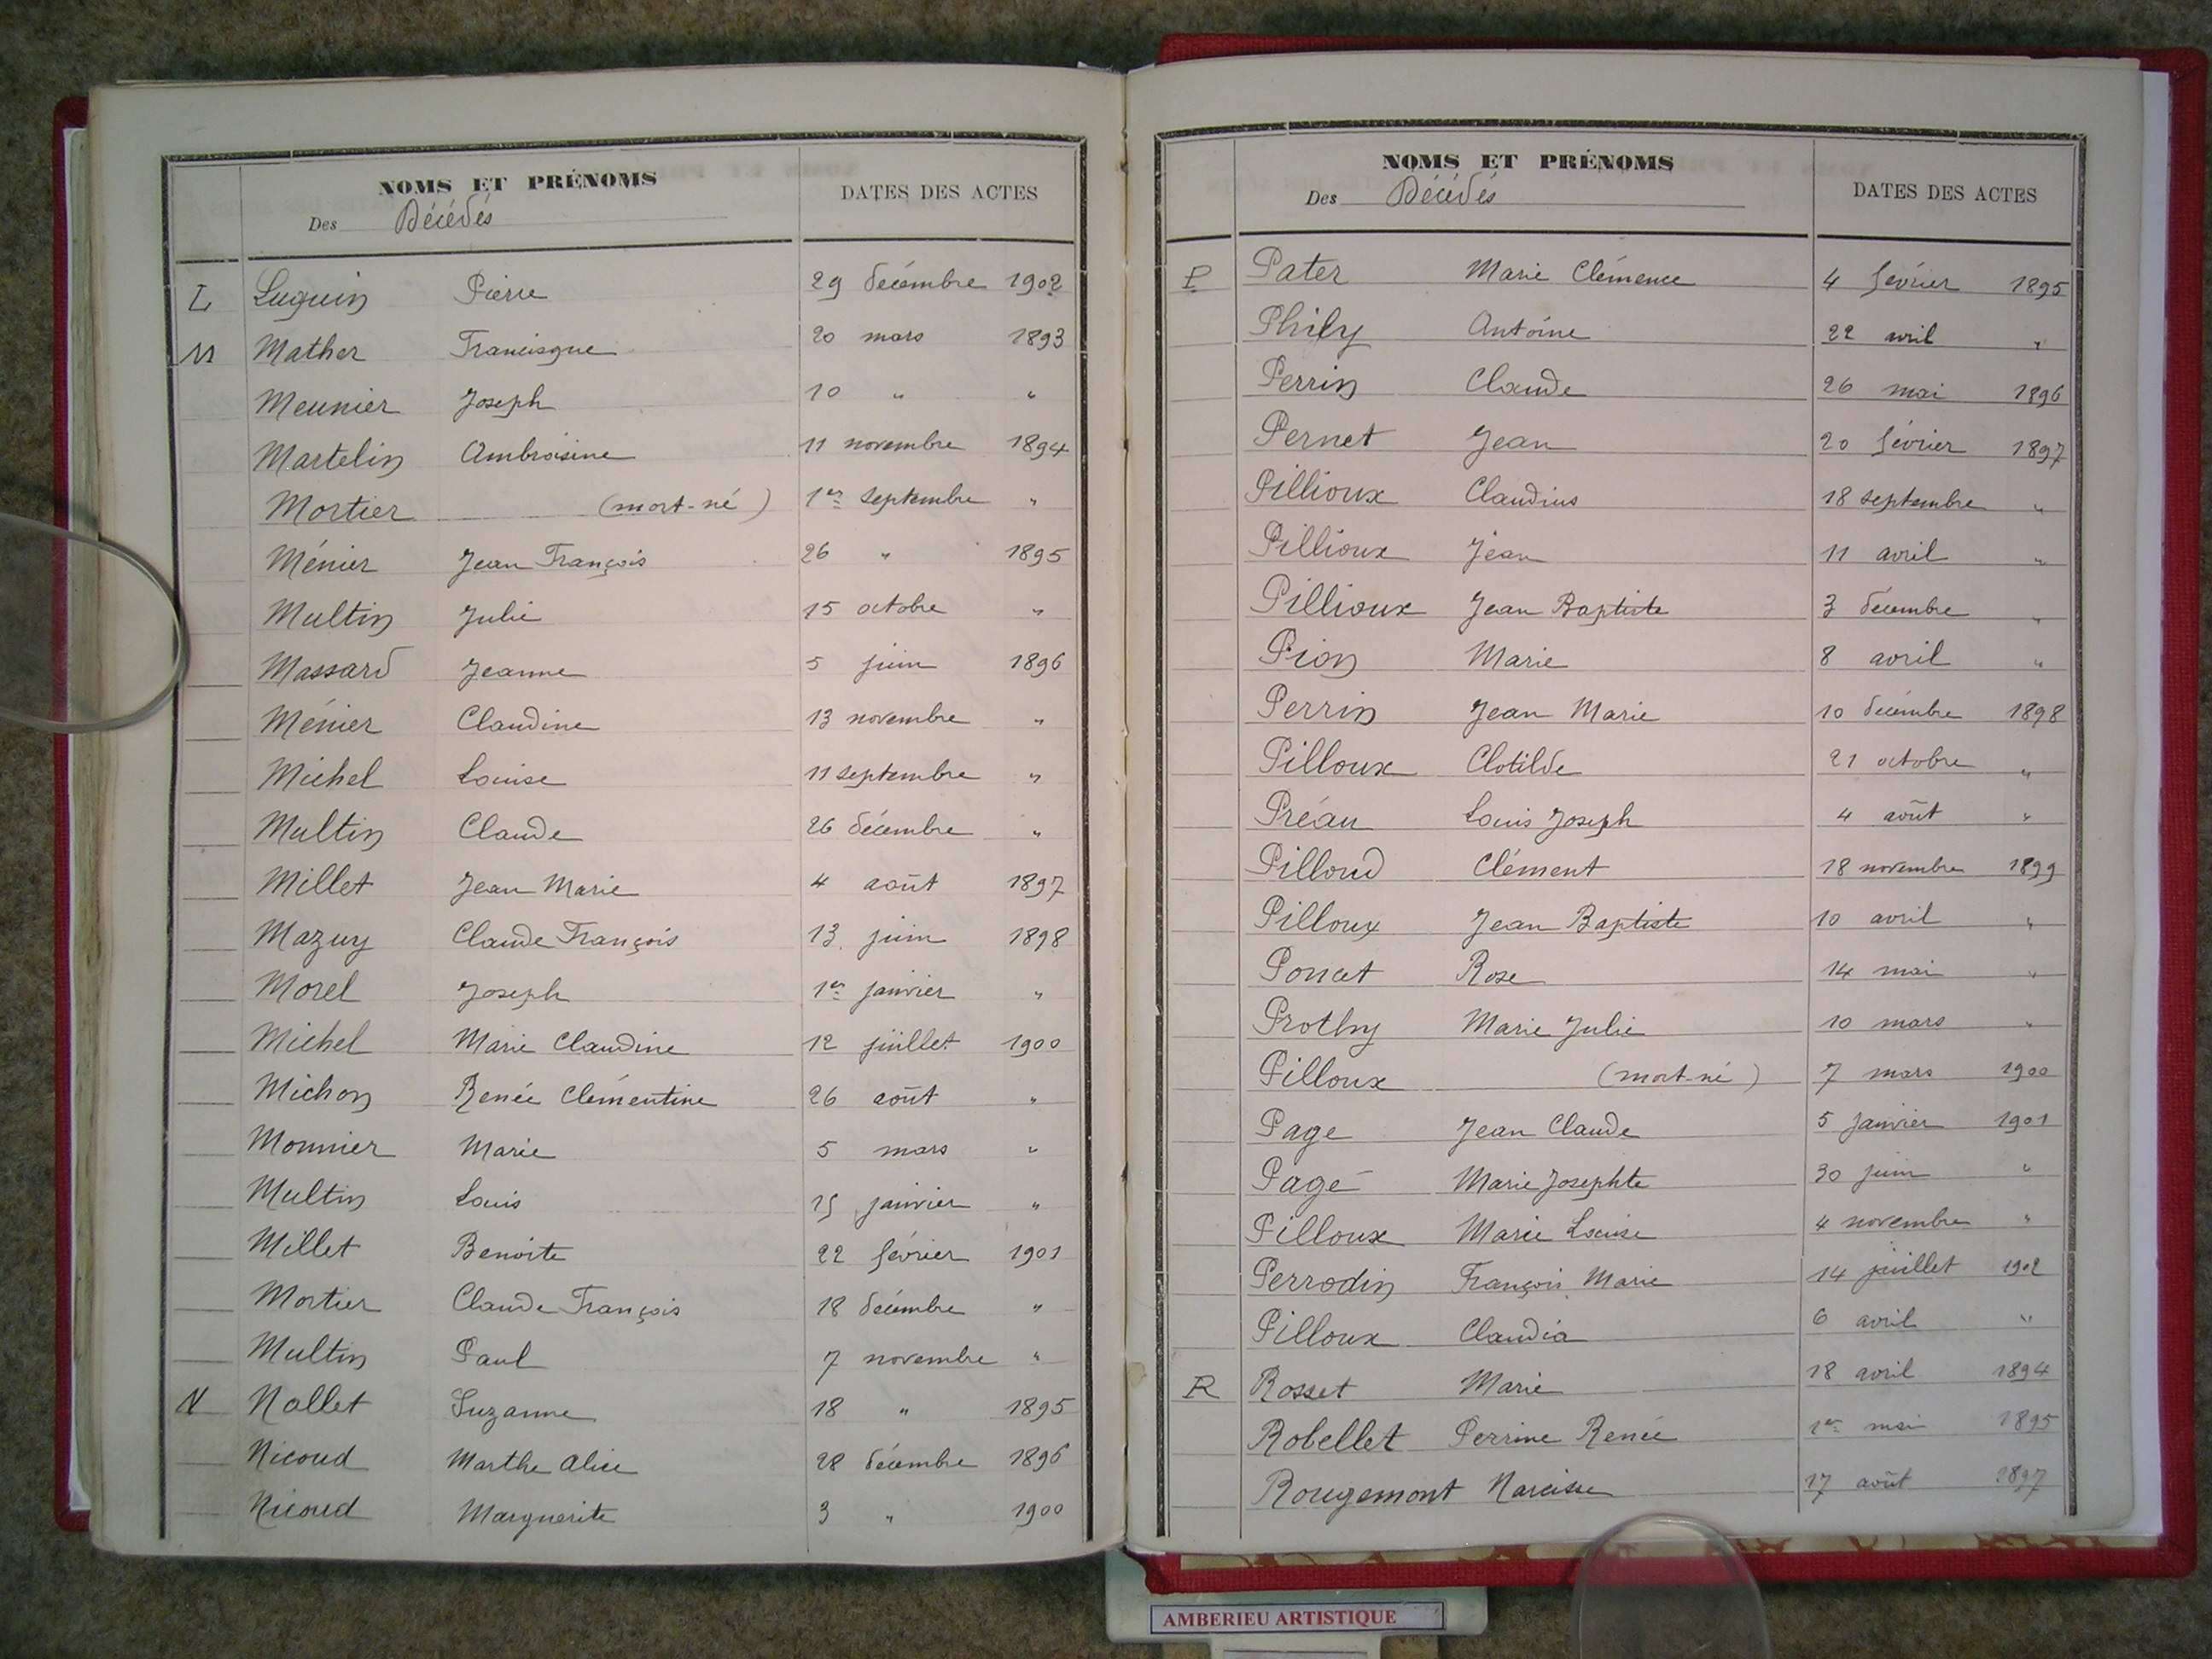 NOMS ET PRÉNOMS
Des Décédés
DATES DES ACTES
L Luguin Pierre 29 décembre 1902
M Mather Francisque 20 mars 1893
Meunier Joseph 10 " "
Martelin Ambroisine 11 novembre 1894
Mortier (mort-né) 1er septembre "
Ménier Jean François 26 " 1895
Multin Julie 15 octobre "
Massard Jeanne 5 juin 1896
Ménier Claudine 13 novembre "
Michel Louise 11 septembre "
Multin Claude 26 décembre "
Millet Jean Marie 4 août 1897
Mazuy Claude François 13 juin 1898
Morel Joseph 1er janvier "
Michel Marie Claudine 12 juillet 1900
Michon Renée Clémentine 26 août "
Monnier Marie 5 mars "
Multin Louis 15 janvier "
Millet Benoite 22 février 1901
Mortier Claude François 18 décembre "
Multin Paul 7 novembre "
N Nallet Suzanne 18 " 1895
Nicoud Marthe Alice 28 décembre 1896
Nicoud Marguerite 3 " 1900
NOMS ET PRÉNOMS
Des Décédés
DATES DES ACTES
P Pater Marie Clémence 4 février 1895
Phily Antoine 22 avril "
Perrin Claude 26 mai 1896
Pernet Jean 20 février 1897
Pillioux Claudius 18 septembre "
Pillioux Jean 11 avril "
Pillioux Jean Baptiste 3 décembre "
Pion Marie 8 avril "
Perrin Jean Marie 10 décembre 1898
Pilloux Clotilde 21 octobre "
Préau Louis Joseph 4 août "
Pilloud Clément 18 novembre 1899
Pilloux Jean Baptiste 10 avril "
Poncet Rose 14 mai "
Prothy Marie Julie 10 mars "
Pilloux (mort-né) 7 mars 1900
Page Jean Claude 5 janvier 1901
Page Marie Josephte 30 juin "
Pilloux Marie Louise 4 novembre "
Perrodin François Marie 14 juillet 1902
Pilloux Claudia 6 avril "
R Rosset Marie 18 avril 1894
Robellet Perrine Renée 1er mai 1895
Rougemont Narcisse 17 août 1897
AMBERIEU ARTISTIQUE